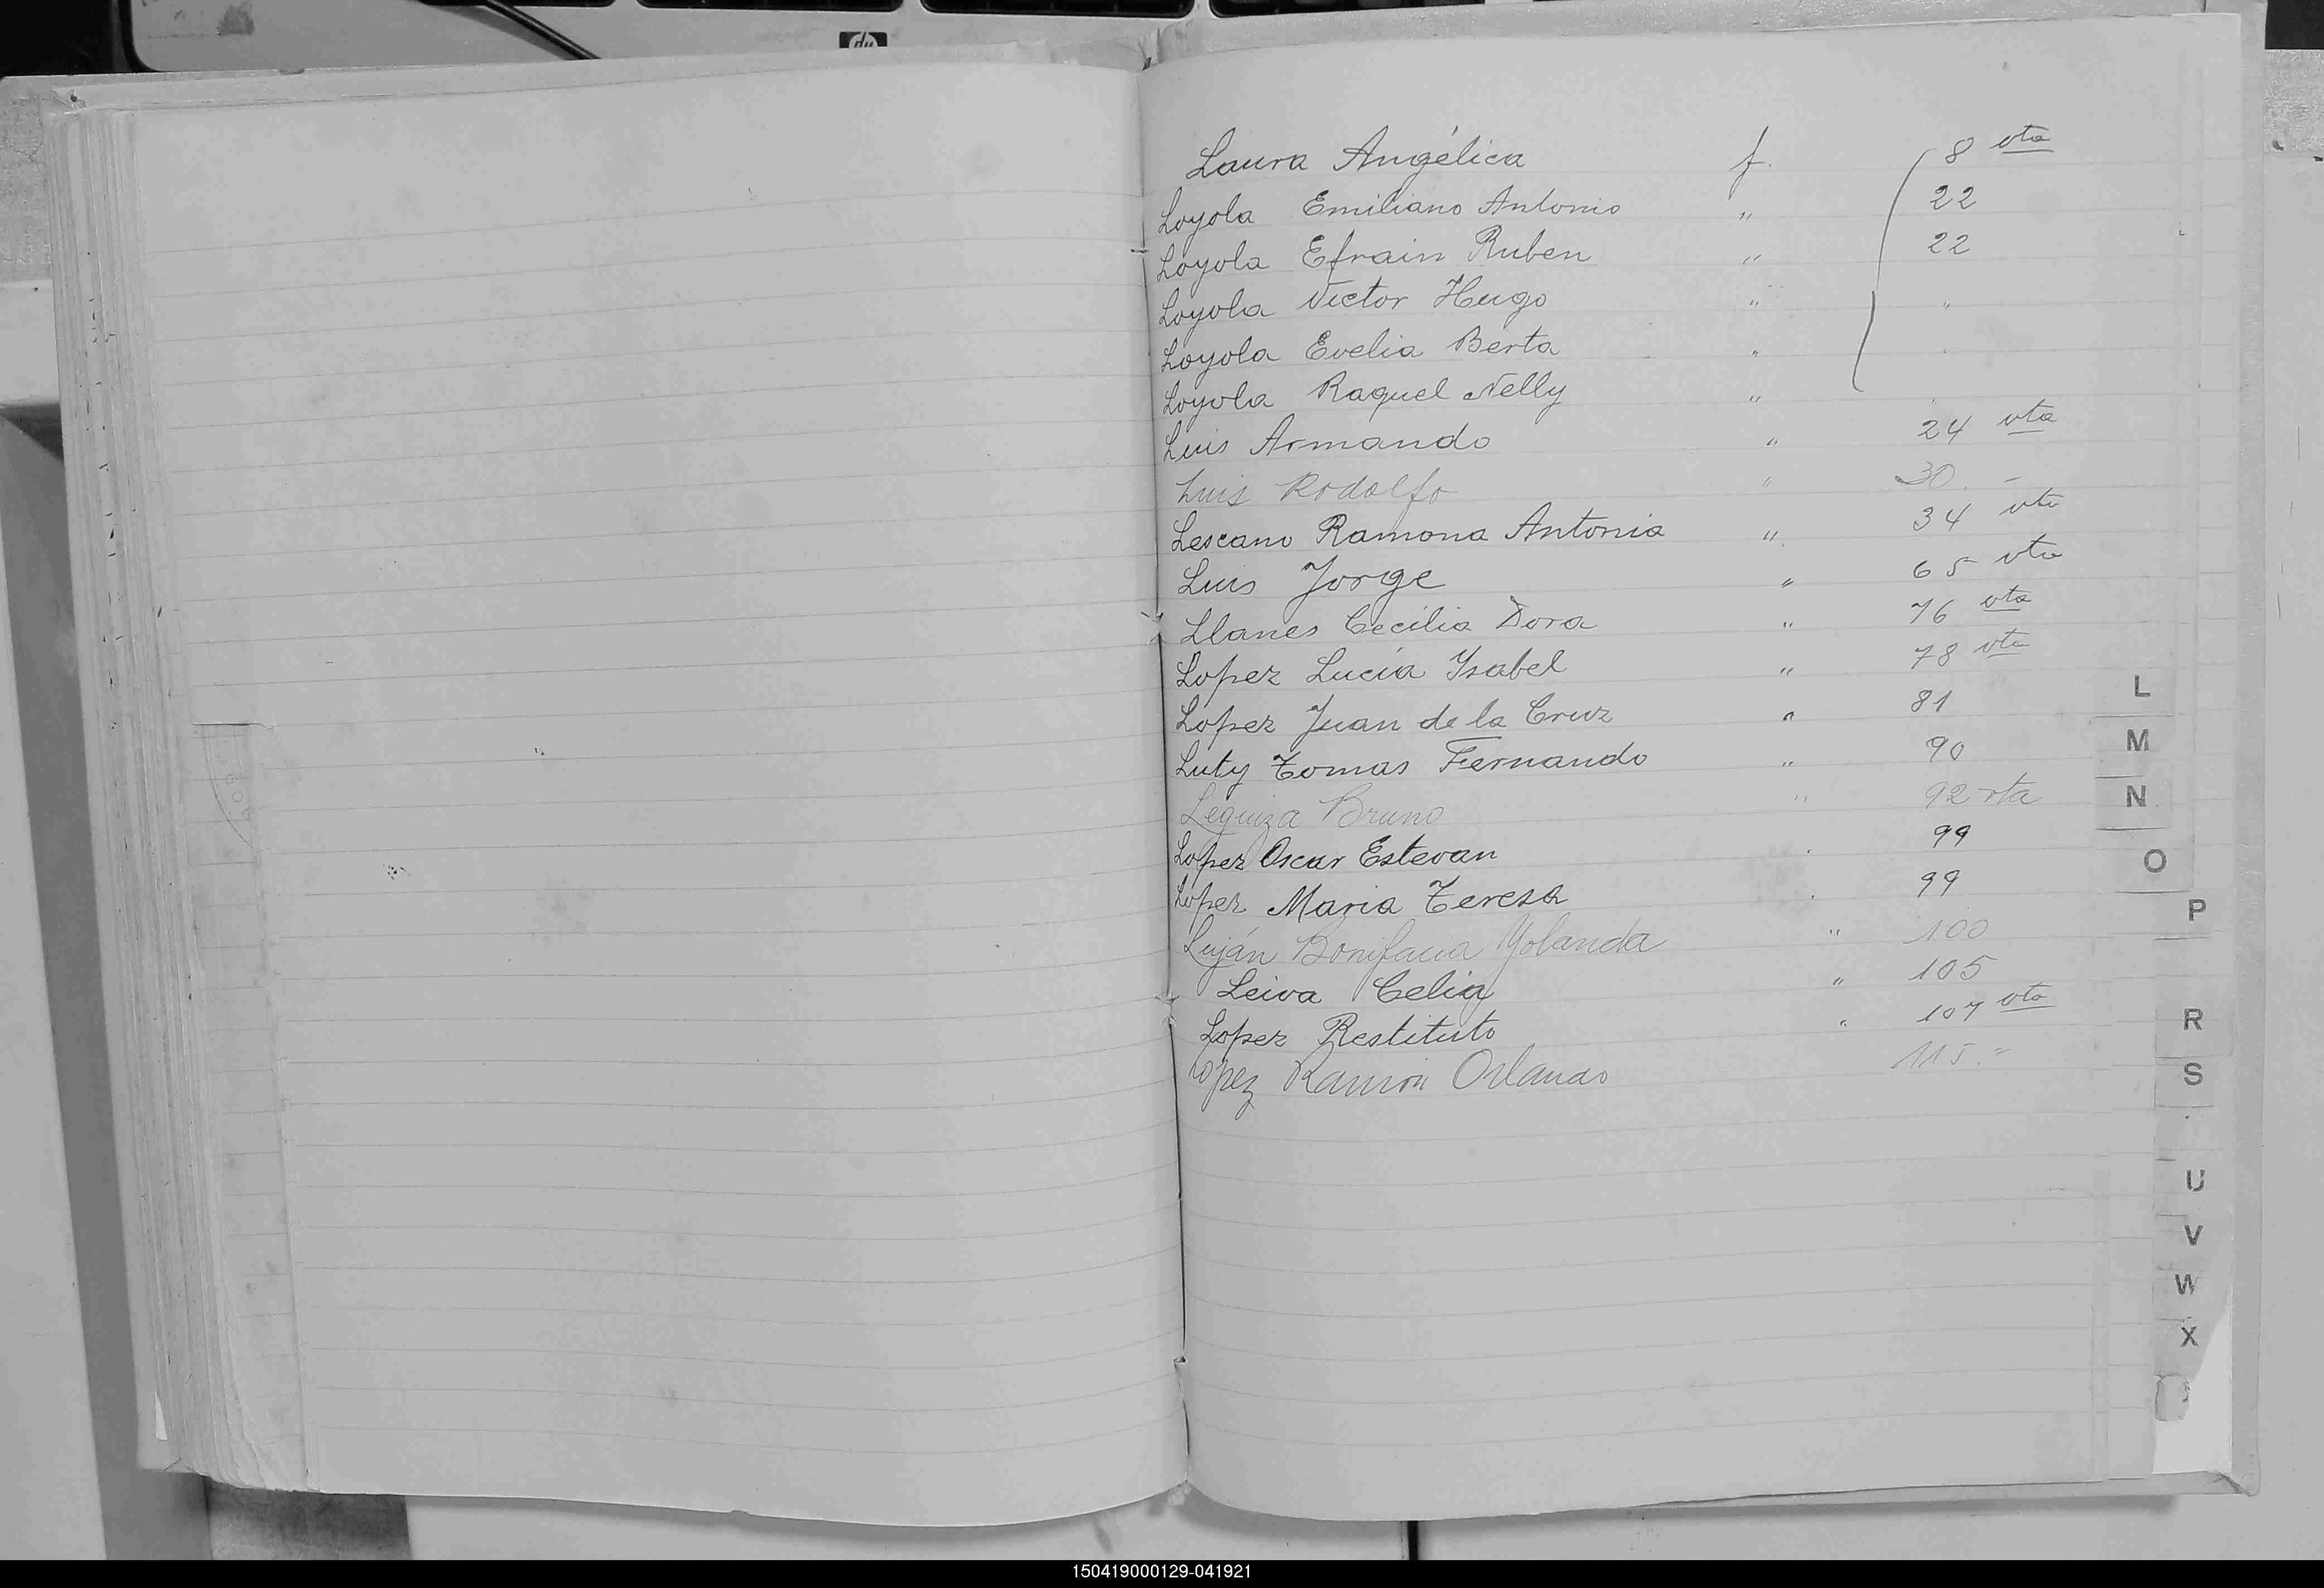 hp
Laura Angélica f. 8 vta
Loyola Emiliano Antonio " 22
Loyola Efrain Ruben " 22
Loyola Victor Hugo " "
Loyola Evelia Berta "
Loyola Raquel Nelly "
Luis Armando " 24 vta
Luis Rodolfo " 30. -
Lescano Ramona Antonia " 34 vta
Luis Jorge " 65 vta
Llanes Cecilia Dora " 76 vta
Lopez Lucía Ysabel " 78 vta
Lopez Juan de la Cruz " 81
Luty Tomas Fernando " 90
Leguiza Bruno " 92 vta
Lopez Oscar Estevan . 99
Lopez Maria Teresa . 99
Luján Bonifacia Yolanda " 100
Leiva Celia " 105
Lopez Restituto " 107 vta
Lopez Ramón Orlando 115.-
L
M
N
O
P
R
S
U
V
W
X
150419000129-041921